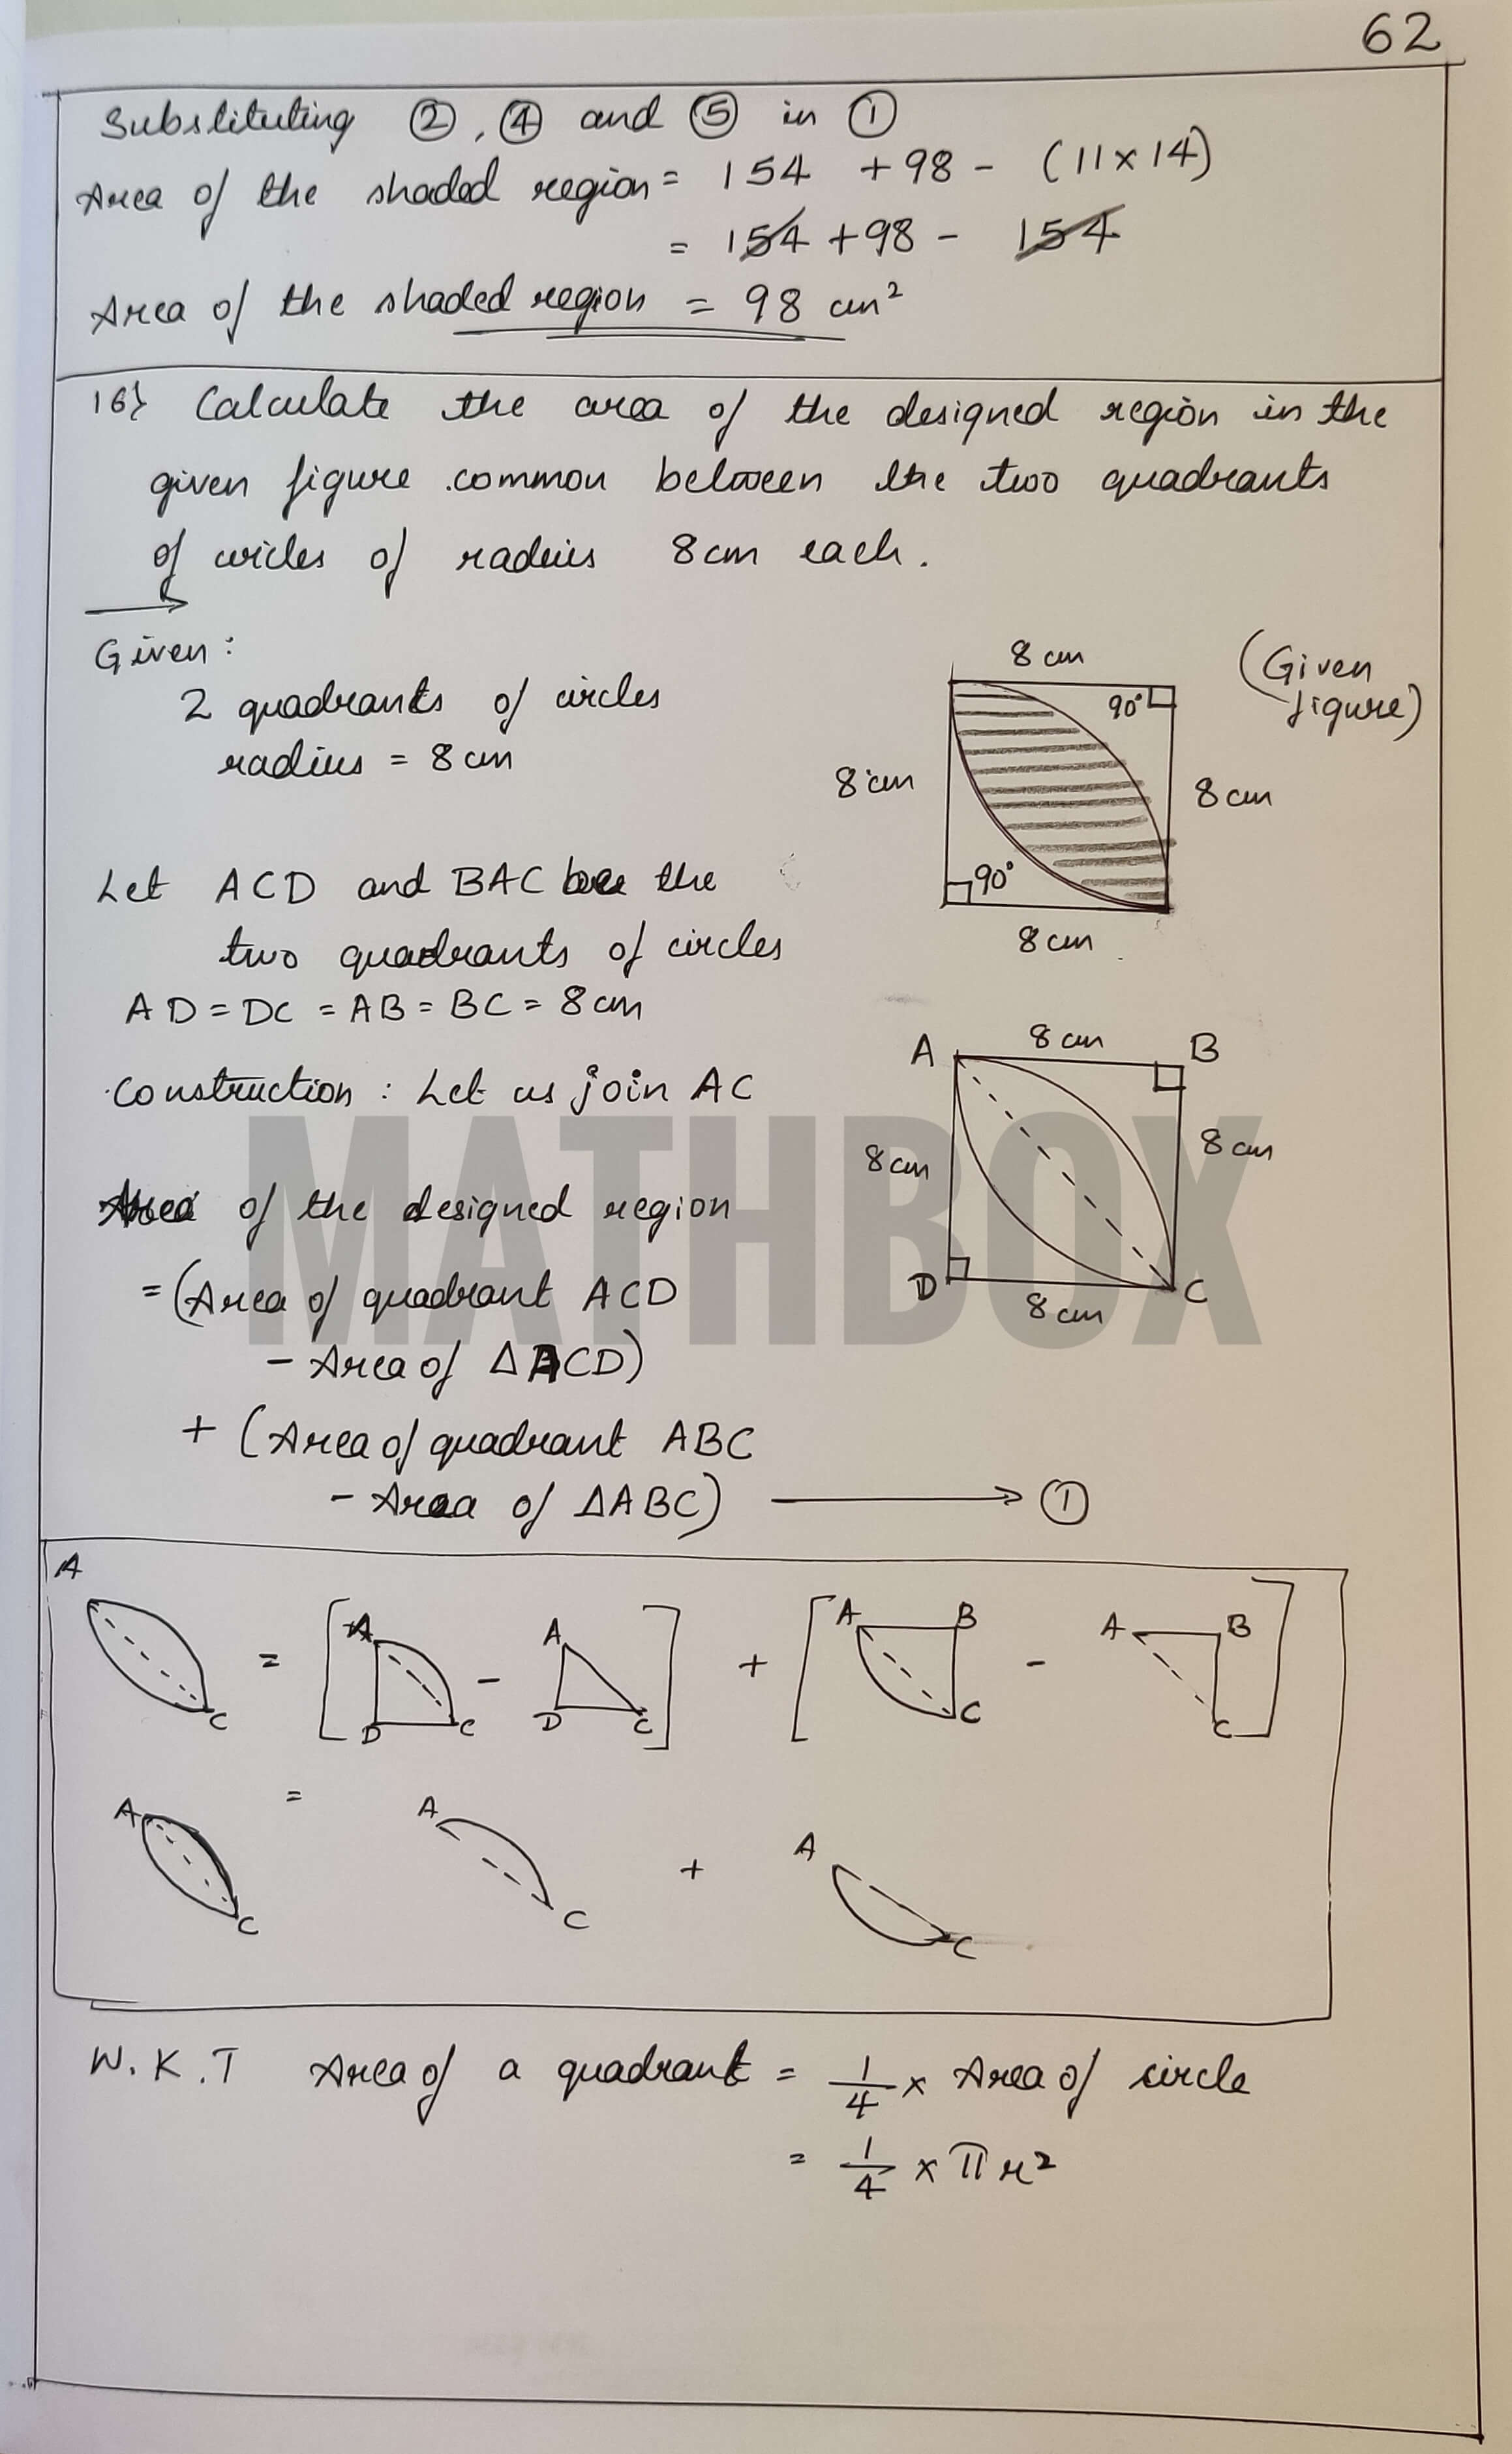 62
Substituting ②, ④ and ⑤ in ①
Area of the shaded region = 154 + 98 - (11 x 14)
= 154 + 98 - 154
Area of the shaded region = 98 cm²
16} Calculate the area of the designed region in the
given figure common between the two quadrants
of circles of radius 8cm each.
Given:
2 quadrants of circles
radius = 8 cm
8 cm
(Given figure)
90°
8 cm
8 cm
90°
8 cm
Let ACD and BAC be the
two quadrants of circles
AD = DC = AB = BC = 8 cm
Construction : Let us join AC
A 8 cm B
8 cm
8 cm
D 8 cm C
MATHBOX
Area of the designed region
= (Area of quadrant ACD
- Area of ΔACD)
+ (Area of quadrant ABC
- Area of ΔABC) → ①
A C = [A D C - A D C] + [A B C - A B C]
A C = A C + A C
W.K.T Area of a quadrant = 1/4 x Area of circle
= 1/4 x πr²